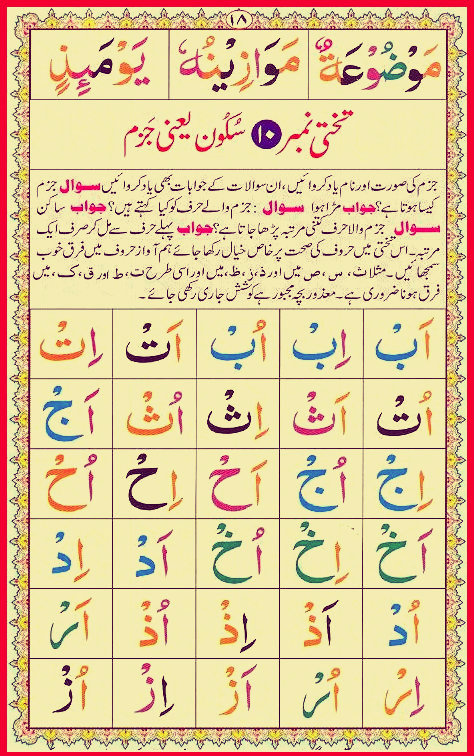 ١٨
مَوْضُوْعَةٌ مَوَازِيْنُهٗ يَوْمَئِذٍ
تختی نمبر ١٠ سُکُون یعنی جَزم
جزم کی صورت اور نام یاد کروائیں، ان سوالات کے جوابات بھی یاد کروائیں سوال جزم
کیسا ہوتا ہے؟ جواب مڑا ہوا سوال : جزم والے حرف کو کیا کہتے ہیں؟ جواب ساکن
سوال جزم والا حرف کتنی مرتبہ پڑھا جاتا ہے؟ جواب پہلے حرف سے مل کر صرف ایک
مرتبہ۔ اس تختی میں حروف کی صحت پر خاص خیال رکھا جائے ہم آواز حروف میں فرق خوب
سمجھائیں۔ مثلا ث، س، ص میں اور ذ، ز، ظ، میں اور اسی طرح ت، ط اور ق، ک، میں
فرق ہونا ضروری ہے۔ معذور بچہ مجبور ہے کوشش جاری رکھی جائے۔
اَبْ اِبْ اُبْ اَتْ اِتْ
اُتْ اَثْ اِثْ اُثْ اَجْ
اِجْ اُجْ اَحْ اِحْ اُحْ
اَخْ اِخْ اُخْ اَدْ اِدْ
اُدْ اَذْ اِذْ اُذْ اَرْ
اِرْ اُرْ اَزْ اِزْ اُزْ